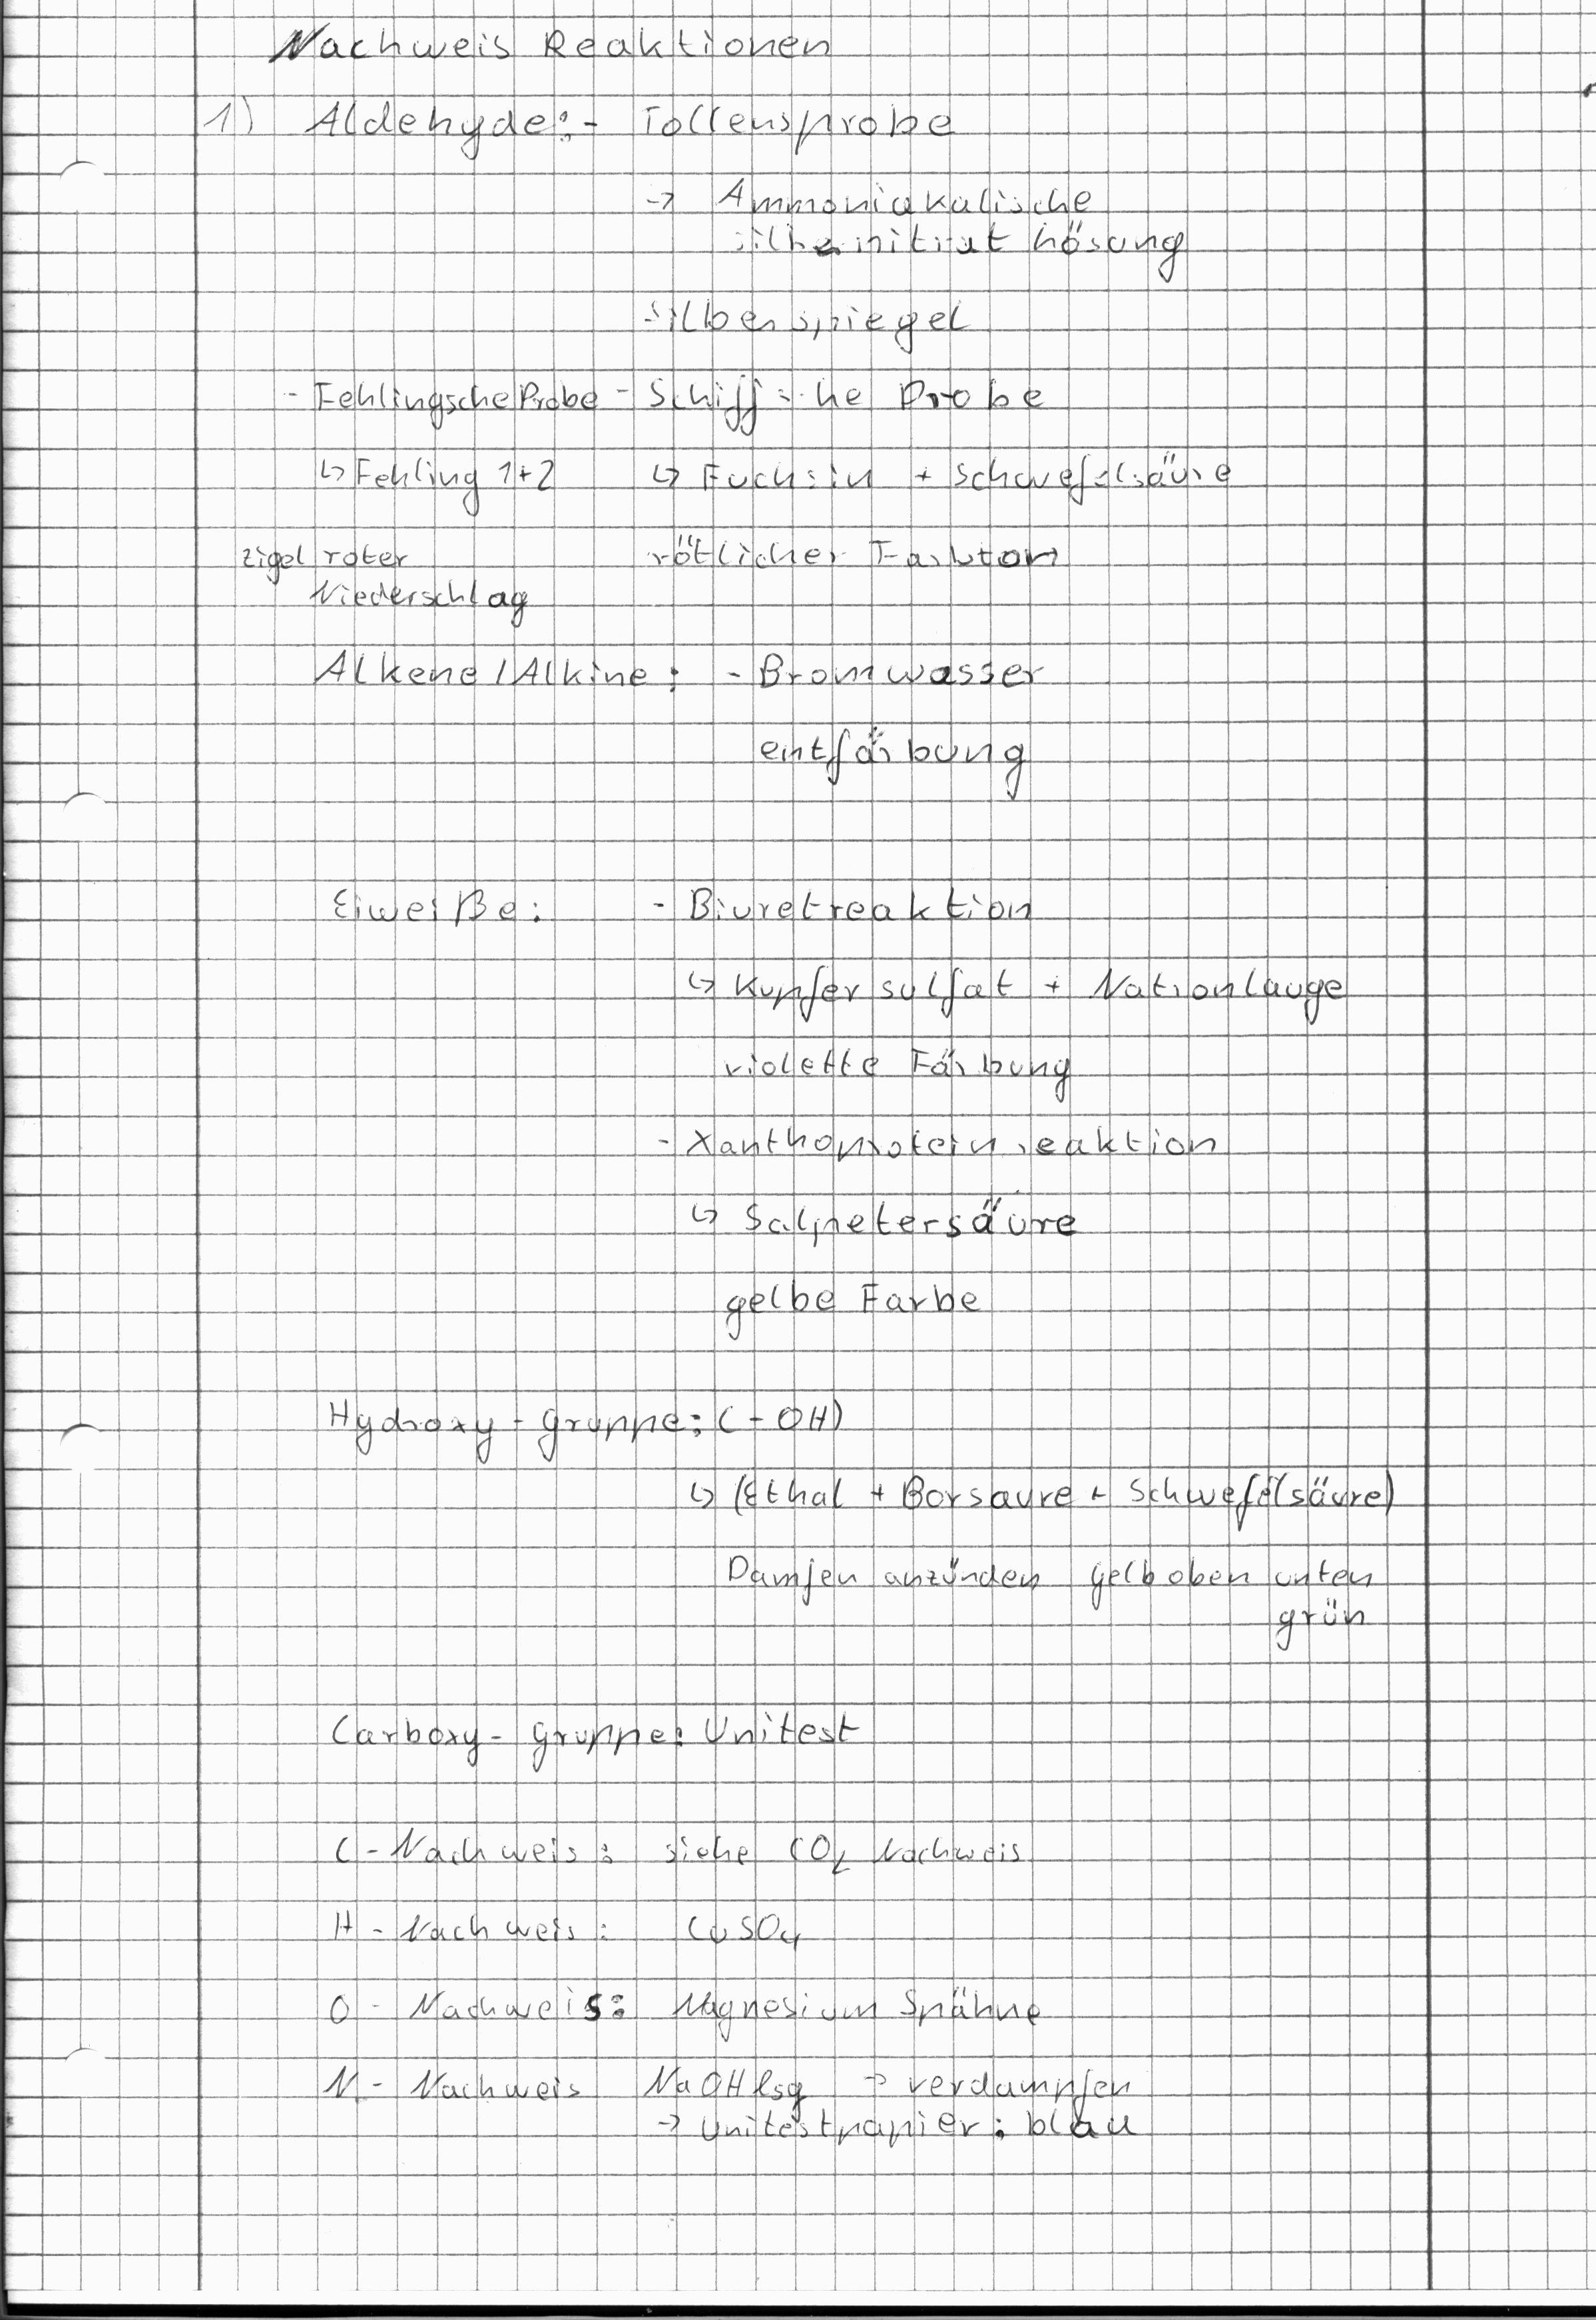 Nachweis Reaktionen
1) Aldehyde: - Tollensprobe
→ Ammoniakalische
silbernitrat Lösung
silberspiegel
- Fehlingsche Probe - Schiffsche Probe
↳ Fehling 1+2 ↳ Fuchsin + schwefelsäure
zigel roter rötlicher Farbton
Niederschlag
Alkene / Alkine: - Bromwasser
entfärbung
Eiweiße: - Biuretreaktion
↳ Kupfersulfat + Nationlauge
violette Färbung
- Xanthoproteinreaktion
↳ Salpetersäure
gelbe Farbe
Hydroxy-gruppe: (-OH)
↳ (Ethal + Borsaure + Schwefelsäure)
Damfen anzünden gelb oben unten
grün
Carboxy-gruppe: Unitest
C-Nachweis: siehe CO2 Nachweis
H-Nachweis: CuSO4
O-Nachweis: Magnesium Spähne
N-Nachweis NaOH lsg → verdampfen
→ Unitestpapier: blau